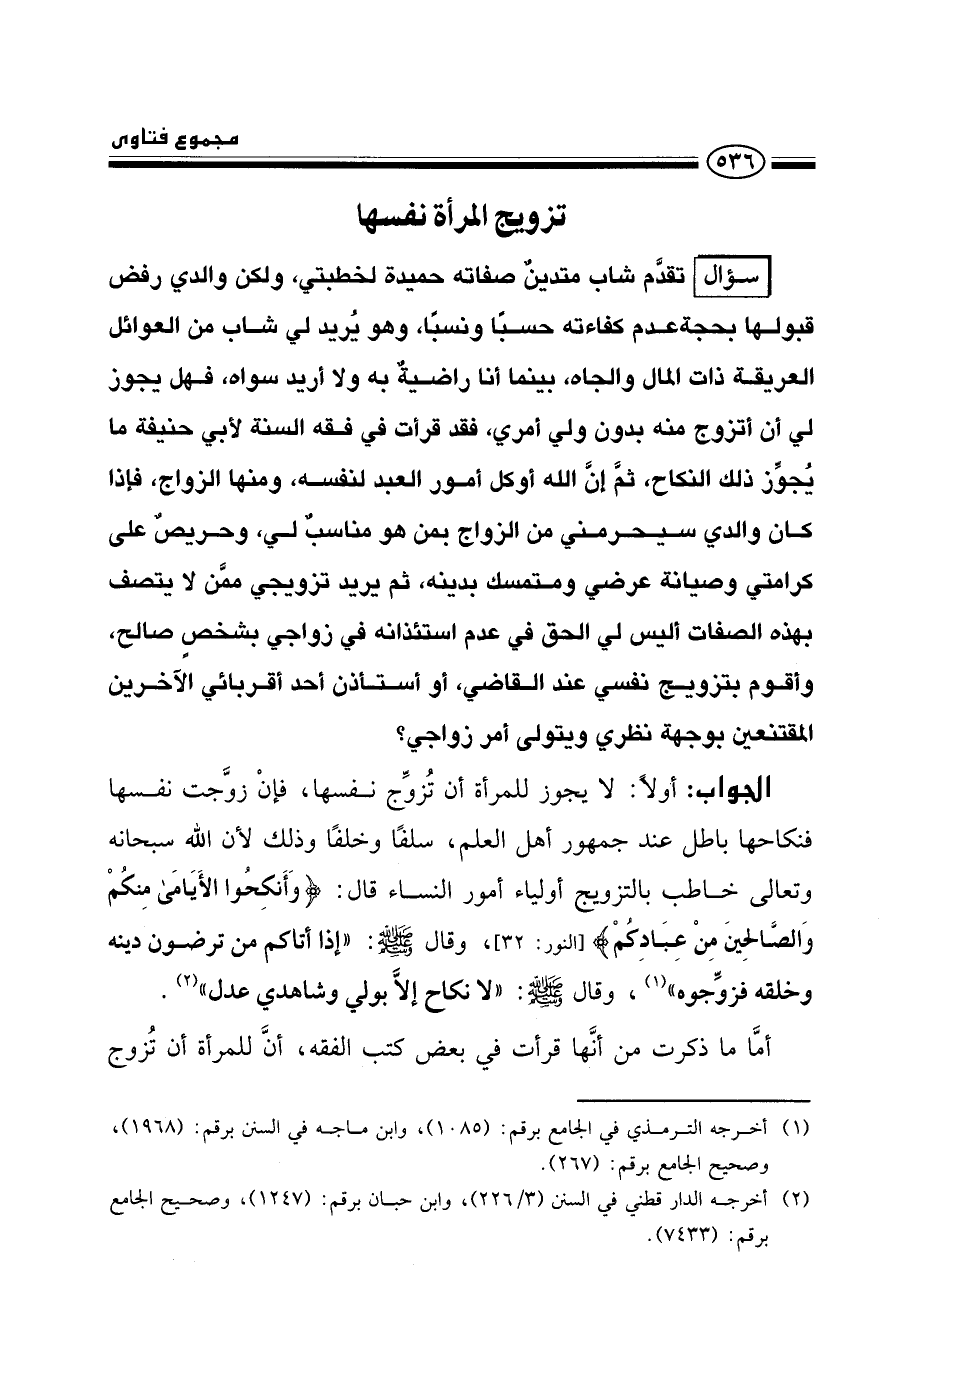 مجموع فتاوى
٥٣٦
تزويج المرأة نفسها
سؤال تقدَّم شاب متدينٌ صفاته حميدة لخطبتي، ولكن والدي رفض
قبولها بحجةعدم كفاءته حسبًا ونسبًا، وهو يُريد لي شاب من العوائل
العريقة ذات المال والجاه، بينما أنا راضيةٌ به ولا أريد سواه، فهل يجوز
لي أن أتزوج منه بدون ولي أمري، فقد قرأت في فقه السنة لأبي حنيفة ما
يُجوِّز ذلك النكاح، ثمَّ إنَّ الله أوكل أمور العبد لنفسه، ومنها الزواج، فإذا
كان والدي سيحرمني من الزواج بمن هو مناسبٌ لي، وحريصٌ على
كرامتي وصيانة عرضي ومتمسك بدينه، ثم يريد تزويجي ممَّن لا يتصف
بهذه الصفات أليس لي الحق في عدم استئذانه في زواجي بشخصٍ صالح،
وأقوم بتزويج نفسي عند القاضي، أو أستأذن أحد أقربائي الآخرين
المقتنعين بوجهة نظري ويتولى أمر زواجي؟
الجواب: أولاً: لا يجوز للمرأة أن تُزوِّج نفسها، فإنْ زوَّجت نفسها
فنكاحها باطل عند جمهور أهل العلم، سلفًا وخلفًا وذلك لأن الله سبحانه
وتعالى خاطب بالتزويج أولياء أمور النساء قال: ﴿وَأَنكِحُوا الأَيَامَىٰ مِنكُمْ
وَالصَّالِحِينَ مِنْ عِبَادِكُمْ﴾ [النور: ٣٢]، وقال ﷺ: «إذا أتاكم من ترضون دينه
وخلقه فزوِّجوه»(١) ، وقال ﷺ: «لا نكاح إلاَّ بولي وشاهدي عدل»(٢) .
أمَّا ما ذكرت من أنَّها قرأت في بعض كتب الفقه، أنَّ للمرأة أن تُزوج
(١) أخرجه الترمذي في الجامع برقم: (١٠٨٥)، وابن ماجه في السنن برقم: (١٩٦٨)،
وصحيح الجامع برقم: (٢٦٧).
(٢) أخرجه الدار قطني في السنن (٣/ ٢٢٦)، وابن حبان برقم: (١٢٤٧)، وصحيح الجامع
برقم: (٧٤٣٣).